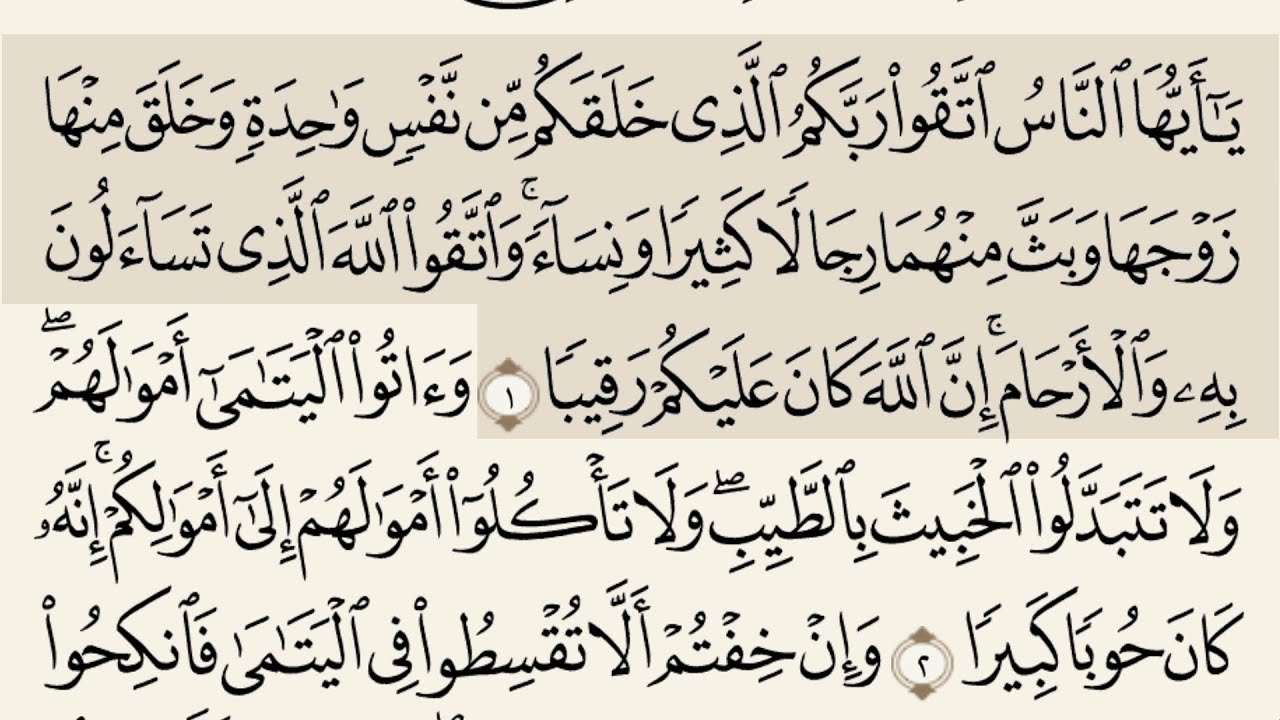 يَٰٓأَيُّهَا ٱلنَّاسُ ٱتَّقُوا۟ رَبَّكُمُ ٱلَّذِى خَلَقَكُم مِّن نَّفْسٍ وَٰحِدَةٍ وَخَلَقَ مِنْهَا
زَوْجَهَا وَبَثَّ مِنْهُمَا رِجَالًا كَثِيرًا وَنِسَآءً ۚ وَٱتَّقُوا۟ ٱللَّهَ ٱلَّذِى تَسَآءَلُونَ
بِهِۦ وَٱلْأَرْحَامَ ۚ إِنَّ ٱللَّهَ كَانَ عَلَيْكُمْ رَقِيبًا ١ وَءَاتُوا۟ ٱلْيَتَٰمَىٰٓ أَمْوَٰلَهُمْ ۖ
وَلَا تَتَبَدَّلُوا۟ ٱلْخَبِيثَ بِٱلطَّيِّبِ ۖ وَلَا تَأْكُلُوٓا۟ أَمْوَٰلَهُمْ إِلَىٰٓ أَمْوَٰلِكُمْ ۚ إِنَّهُۥ
كَانَ حُوبًا كَبِيرًا ٢ وَإِنْ خِفْتُمْ أَلَّا تُقْسِطُوا۟ فِى ٱلْيَتَٰمَىٰ فَٱنكِحُوا۟